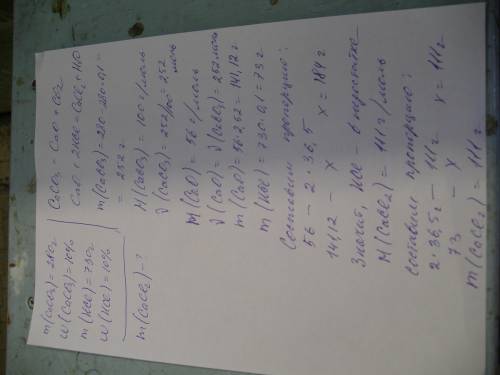 m(CaCO3)=280г
w(CaCO3)=10%
m(HCl)=730г
w(HCl)=10%
m(CaCl2)-?
CaCO3 = CaO + CO2
CaO + 2HCl = CaCl2 + H2O
m(CaCO3) = 280 - 280·0,1 =
= 252 г
M(CaCO3) = 100 г/моль
ν(CaCO3) = 252/100 = 2,52 моль
M(CaO) = 56 г/моль
ν(CaO) = ν(CaCO3) = 2,52 моль
m(CaO) = 56·2,52 = 141,12 г
m(HCl) = 730·0,1 = 73 г
Составим пропорцию:
56 – 2·36,5
14,12 – x x = 184 г
Значит, HCl – в недостатке
M(CaCl2) = 111 г/моль
составим пропорцию:
2·36,5г – 111 г
73 – x x = 111 г
m(CaCl2) = 111 г